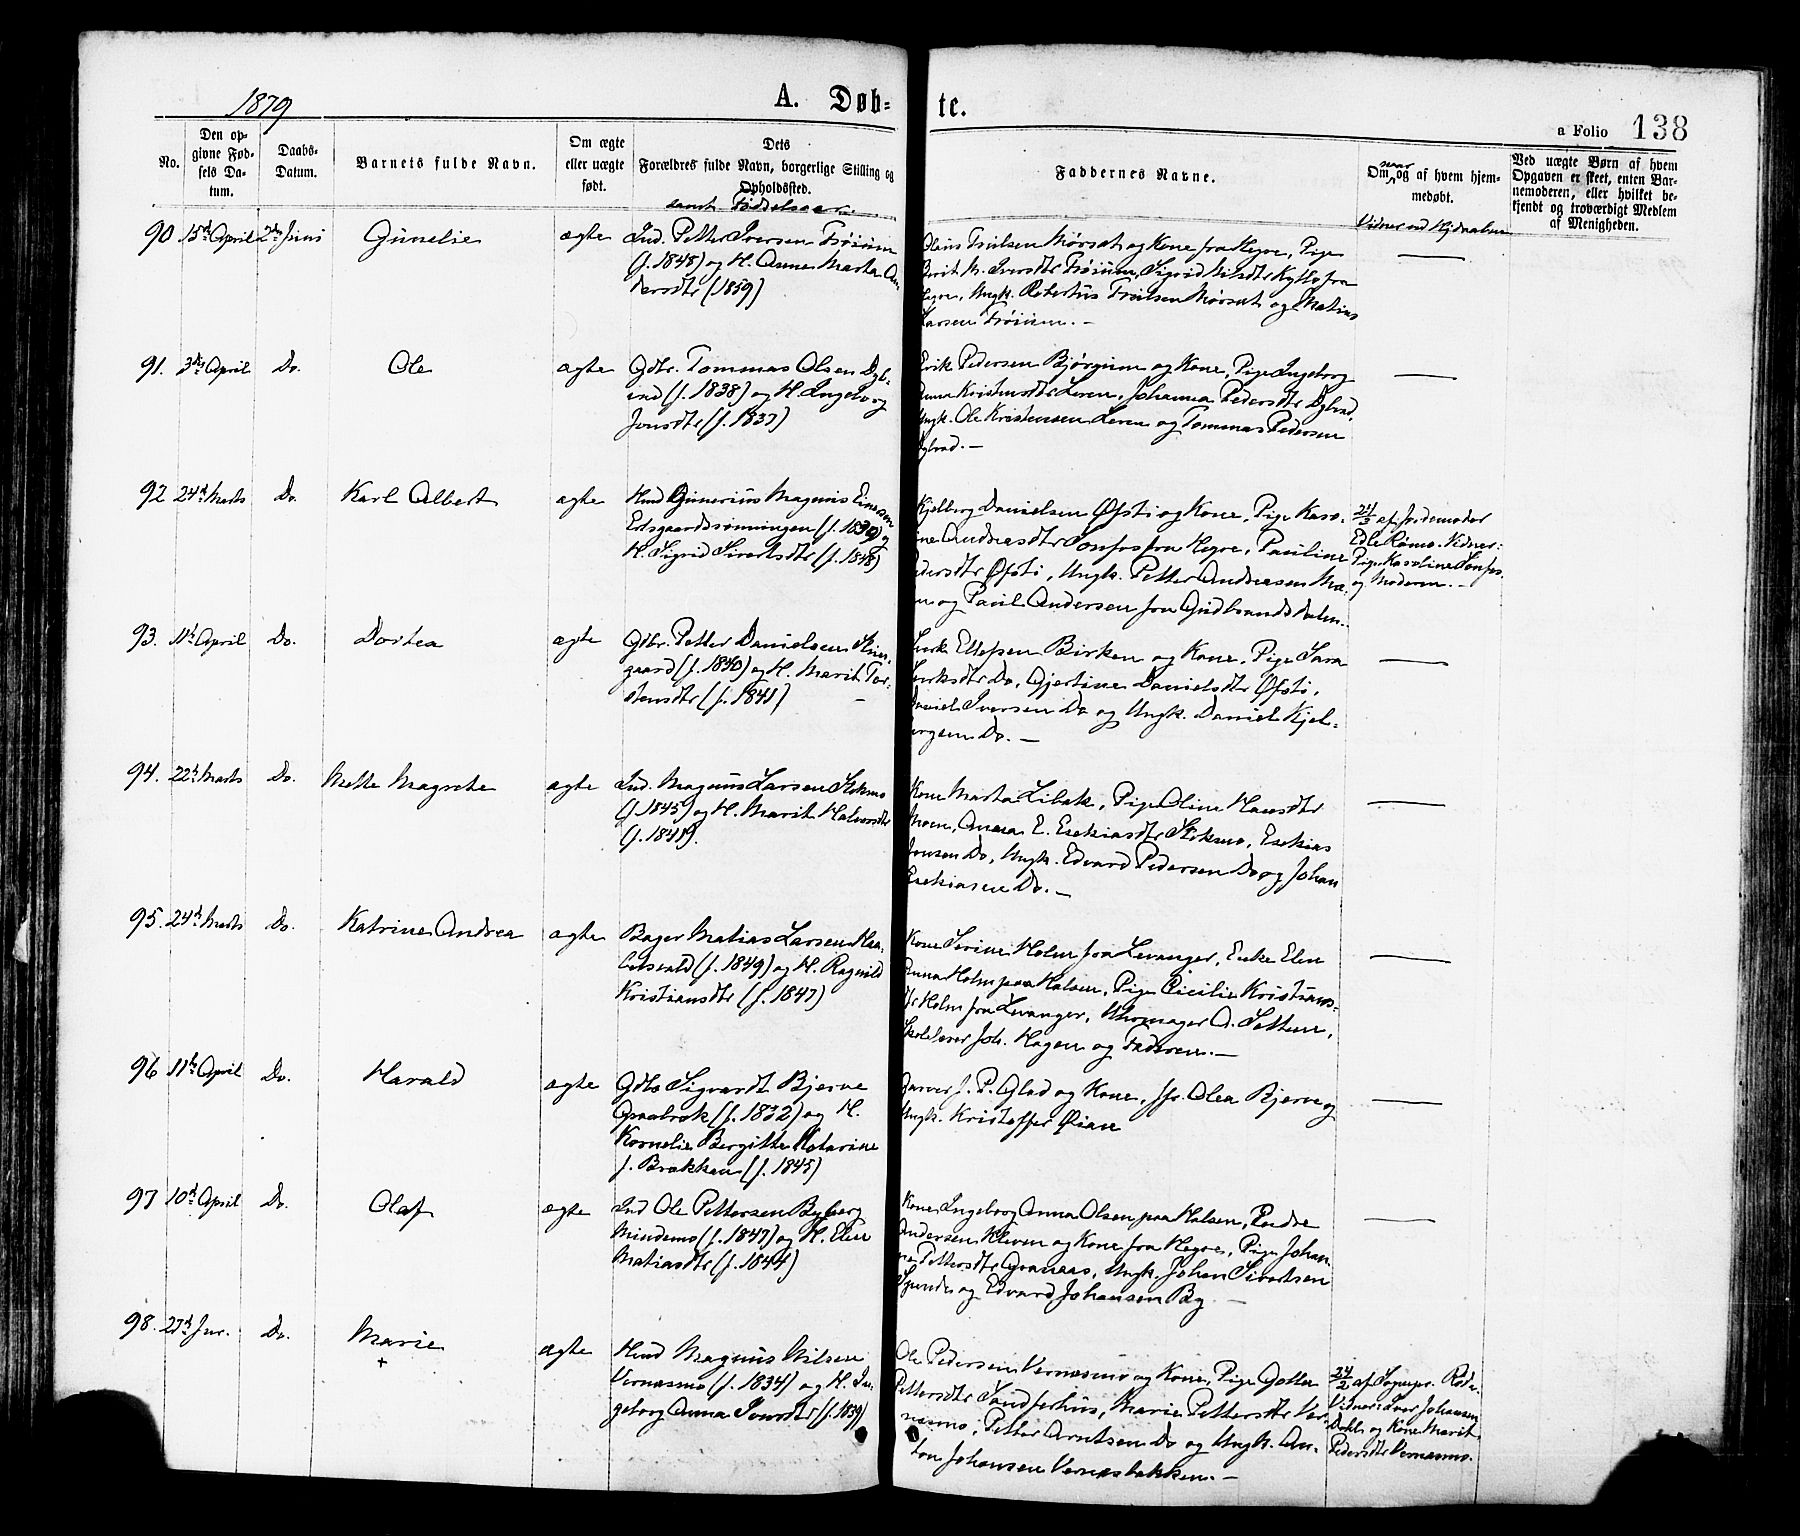 1879
A. Døb=
te.
a Folio 138
No.
Den op-
givne Fød-
sels Da-
tum.
Daabs-
Datum.
Barnets fulde Navn.
Om ægte
eller uægte
født.
Dets
Forældres fulde Navn, borgerlige Stilling og
Opholdssted.
samt Fødselsaar
Faddernes Navne.
naar
Om og af hvem hjem-
medøbt.
Vidner ved Hjdaaben
Ved uægte Børn af hvem
Opgaven er skeet, enten Bar-
nemoderen, eller hvilket be-
kjendt og troværdigt Medlem
af Menigheden.
90 15de April 2de Juni Gunelie ægte Ind. Petter Iversen Frøium
(f. 1848) og H. Anne Marta An-
dersdtr (1859)
Olaus Troilsen Mørsat og Kone fra Hegre, Pige
Berit M. Iversdtr Frøium, Sigrid Nilsdtr Kyllo fra
Hegre, Ungk. Robertus Troilsen Mørsat og Matias
Larsen Frøium. —
91. 3die April Do. Ole ægte Gdbr. Tommas Olsen Dyb-
vad (f. 1838) og H. Ingeborg
Jonsdtr (f. 1837)
Erik Pedersen Bjørgum og Kone, Pige Ingeborg
Anna Kristensdtr Leren, Johanna Pedersdtr Dybvad,
Ungk. Ole Kristensen Leren og Tommas Pedersen
Dybvad. —
92 24de Marts Do. Karl Albert ægte Hmd Gunerius Magnus Einersen
Eidsgaardsrønningen (f. 1839) og
H. Sigrid Sivertsdtr (f. 1848)
Kjelberg Danielsen Øfsti og Kone, Pige Karo-
line Andreasdtr Sonfos fra Hegre, Pauline
Pedersdtr Øfsti, Ungk. Petter Andreasen Mæ-
og Paul Andersen fra Gudbrandsdalen.
24/3 af Jordemoder
Edle Rømo. Vidner:
Pige Karoline Sonfos
og Moderen. —
93. 11te April Do. Dortea ægte Gdbr. Petter Danielsen Skjer-
gaard (f. 1840) og H. Marit Tor-
stensdtr (f. 1841) —
Sverke Ellefsen Birken og Kone, Pige Sara
Do, Gjertine Danielsdtr Øfsti,
Daniel Iversen Do og Ungk. Daniel Kjel-
bergsen Do. —
94. 22de Marts Do. Mette Magrete ægte Ind. Magnus Larsen Stokmo
(f. 1845) og H. Marit Halvorsdtr
(f. 1841).
Kone Marta Libak, Pige Oline Hansdtr
Moen, Anna E. Esekiasdtr Stokmo, Esekias
Jonsen Do, Ungk. Edvard Pedersen Do og Johan
Esekiasen Do. —
95. 24de Marts Do. Katrine Andrea ægte Bager Matias Larsen Haa-
(f. 1849) og H. Ragnild
Kristiansdtr (f. 1847)
Kone Serine Holm fra Levanger, Enke Elen
Anna Holm paa Halsen, Pige Cicilie Kristians-
dtr Holm fra Levanger, Uhrmager A. Settem,
Skolelærer Joh. Hagen og Faderen. —
96 11te April Do. Harald ægte Gdbr Sigvardt Bjerve
Graabrek (f. 1832) og H.
Kornelie Bergitte Katarine
f. Brækkan (f. 1845)
Garver J. P. Glad og Kone, Jfr. Olea Bjerve og
Ungk. Kristoffer Øian
97 10de April Do. Olaf ægte Ind Ole Pettersen Byberg
Mindemo (f. 1847) og H. Elen
Matiasdtr (f. 1844)
Kone Ingeborg Anna Olsen paa Halsen, Endre
Andersen Kleven og Kone fra Hegre, Pige Johan-
na Pettersdtr Granaas, Ungk. Johan Sivertsen
og Edvard Johansen By —
98. 27de Jan. Do. Marie
+
ægte Hmd Magnus Nilsen
Vernæsmo (f. 1834) og H. In-
geborg Anna Jonsdtr (f. 1839)
Ole Pedersen Vernæsmo og Kone, Pige Golla
Pettersdtr Sandferhus, Marie Pettersdtr Ver-
næsmo, Petter Arntsen Do og Ungk. An-
ton Johansen Vernæsbakken. —
24/2 af Sognepr. Rode.
Vidner: Iver Johansen
Dahl og Kone Marit
Pedersdtr Vernæsmo.